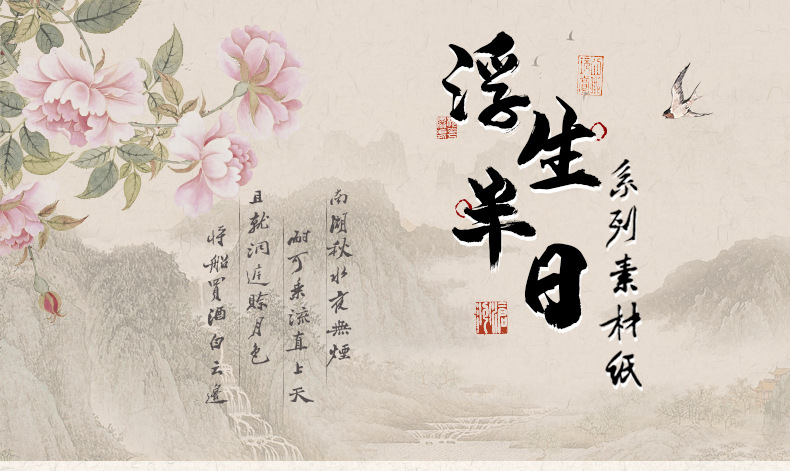 浮生半日
系列素材纸
南湖秋水夜無煙
耐可乘流直上天
且就洞庭賒月色
将船買酒白云邊